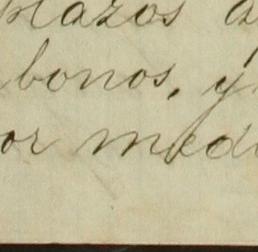 plazos a
bonos, y
or medi